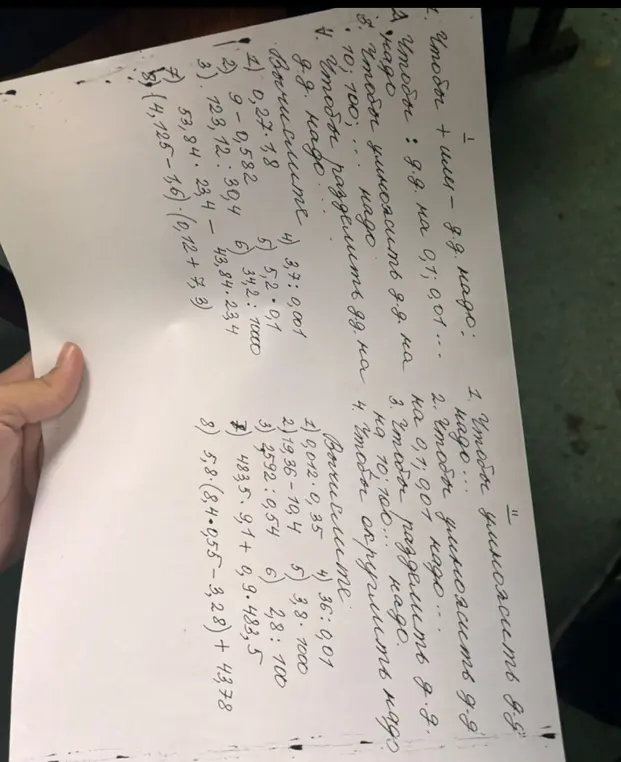 I
1. Чтобы + или - д.д. надо:
2. Чтобы : д.д. на 0,1; 0,01...
надо
3. Чтобы умножить д.д. на
10; 100; ... надо
4. Чтобы разделить д.д. на
д.д. надо...
Вычислите
1) 0,27·1,8
2) 9 - 0,582
3) 123,12 : 30,4
4) 3,7 : 0,001
5) 5,2 · 0,1
6) 34,2 : 1000
7) 53,84 · 23,4 - 43,84·23,4
8) (4,125 - 1,6)·(0,12 + 7,3)
II
1. Чтобы умножить д.д
надо...
2. Чтобы умножить д.д
на 0,1; 0,01 надо...
3. Чтобы разделить д.д.
на 10; 100... надо.
4. Чтобы округлить надо
Вычислите
1) 0,012·0,35
2) 19,36 - 10,4
3) 2592 : 0,54
4) 36 : 0,01
5) 3,8·1000
6) 2,8 : 100
7) 483,5·9,1 + 0,9·483,5
8) 5,8·(84·0,55 - 3,28) + 43,78